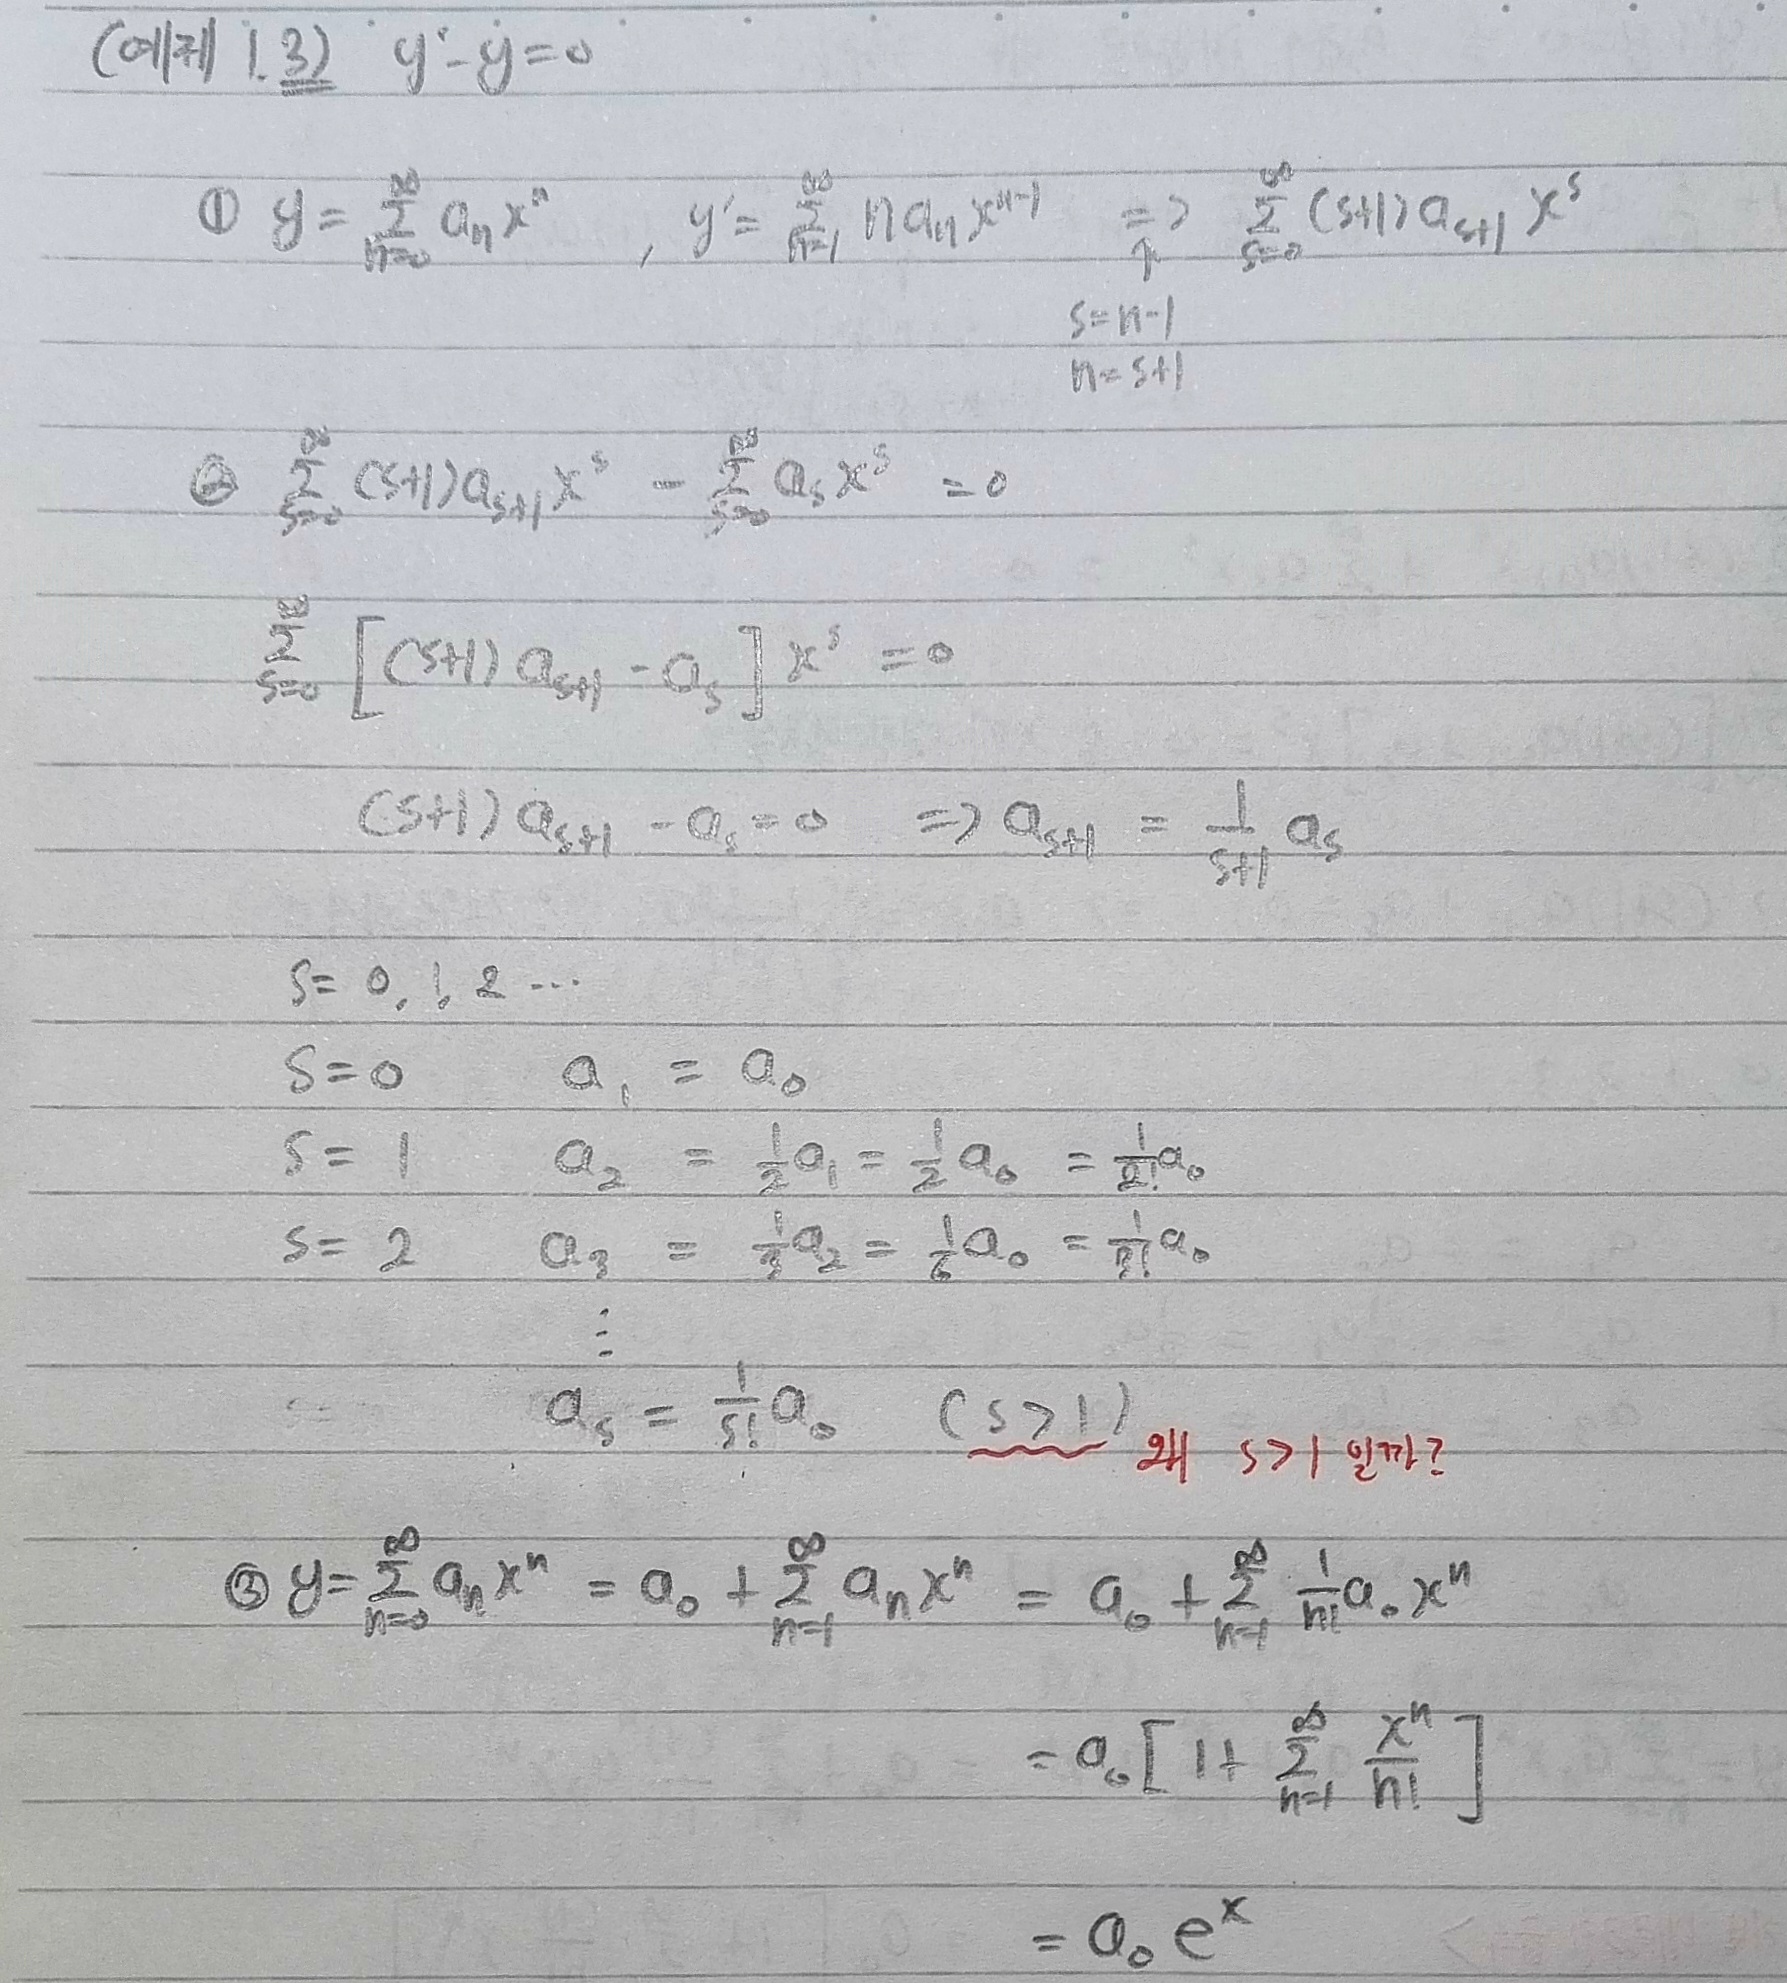 (예제 1.3) y'-y=0
① y = ∑_{n=0}^{∞} a_n x^n , y' = ∑_{n=1}^{∞} n a_n x^{n-1} => ∑_{s=0}^{∞} (s+1) a_{s+1} x^s
↑
s=n-1
n=s+1
② ∑_{s=0}^{∞} (s+1) a_{s+1} x^s - ∑_{s=0}^{∞} a_s x^s = 0
∑_{s=0}^{∞} [(s+1) a_{s+1} - a_s] x^s = 0
(s+1) a_{s+1} - a_s = 0 => a_{s+1} = \frac{1}{s+1} a_s
s= 0, 1, 2 ...
s=0 a_1 = a_0
s= 1 a_2 = \frac{1}{2} a_1 = \frac{1}{2} a_0 = \frac{1}{2!} a_0
s= 2 a_3 = \frac{1}{3} a_2 = \frac{1}{6} a_0 = \frac{1}{3!} a_0
⋮
a_s = \frac{1}{s!} a_0 (s>1) 왜 s>1 일까?
③ y = ∑_{n=0}^{∞} a_n x^n = a_0 + ∑_{n=1}^{∞} a_n x^n = a_0 + ∑_{n=1}^{∞} \frac{1}{n!} a_0 x^n
= a_0 [1+ ∑_{n=1}^{∞} \frac{x^n}{n!}]
= a_0 e^x